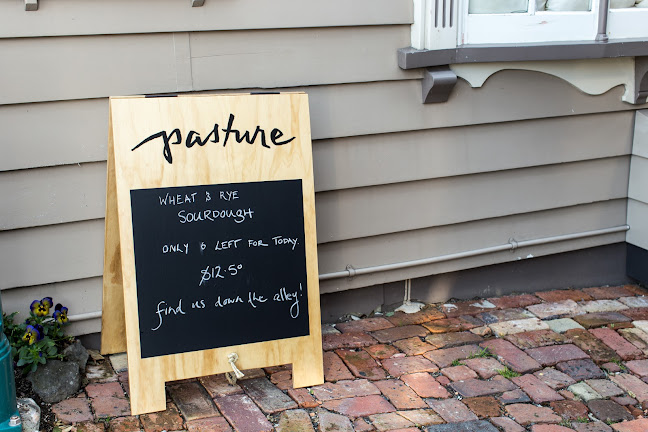 pasture
WHEAT & RYE
SOURDOUGH
ONLY 6 LEFT FOR TODAY.
$12.50
find us down the alley!